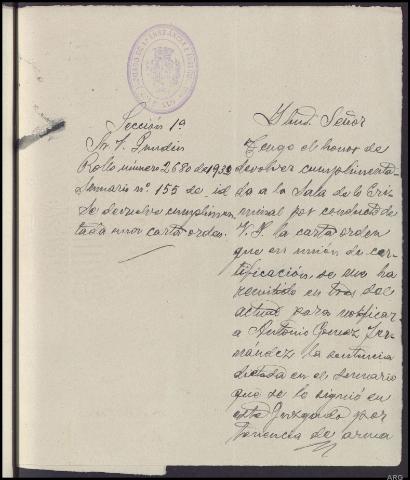 JUZGADO DE 1ª INSTANCIA E INSTRUCCIÓN
Sección 1ª
Sr. V.
Rollo número 2680 de 1932
Sumario nº. 155 de id
Se devuelve cumplimen
tada una carta orden.
Ilmo. Señor
Tengo el honor de
devolver cumplimenta-
da a la Sala de lo Cri-
minal por conducto de
V.I. la carta orden
que en unión de cer-
tificación se me ha
remitido en tres del
actual para notificar
a Antonio Gomez Fer-
nández la sentencia
dictada en el sumario
que se le siguió en
este Juzgado por
tenencia de arma
ARG